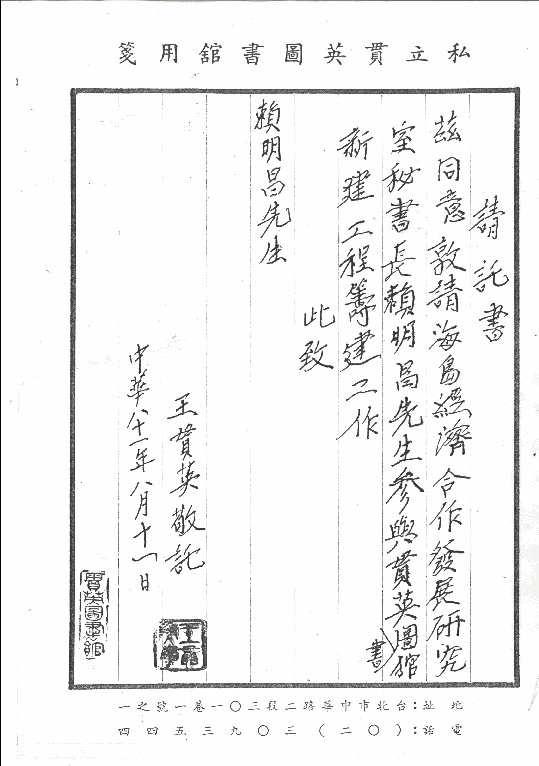 私立貫英圖書舘用箋
請託書
茲同意敦請海島經濟合作發展研究
室秘書長賴明昌先生參與貫英圖書館
新建工程籌建工作
此致
賴明昌先生
王貫英敬託
中華八十一年八月十一日
王貫英
貫英圖書館
地址：台北市中華路二段三〇一巷一號之一
電話：(〇二)三〇九三五四四